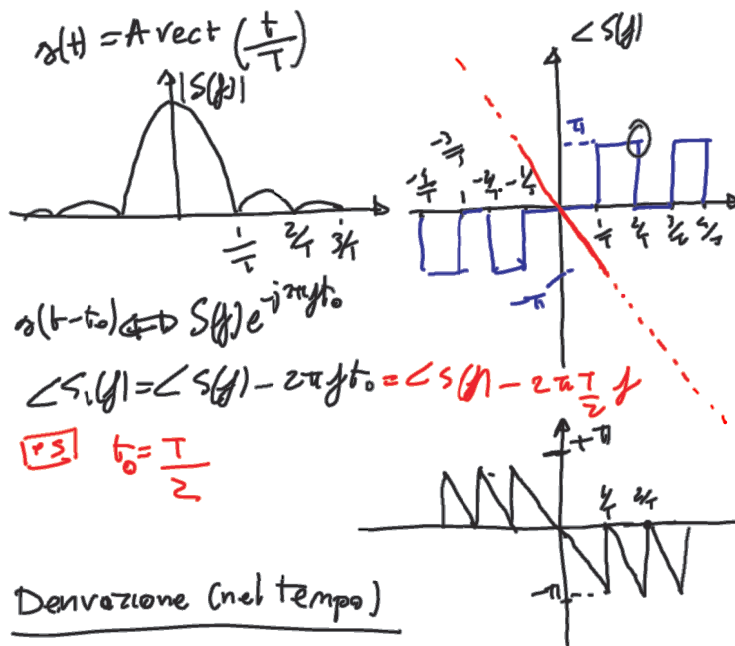 s(t) = A rect (t/T)
|S(f)|
1/T 2/T 3/T
∠ S(f)
π
-2/T -1/T
1/T 2/T 3/T 4/T
-π
s(t-t₀) ⟺ S(f) e^{-j2πft₀}
∠S₁(f) = ∠S(f) - 2πft₀ = ∠S(f) - 2π T/2 f
t₀ = T/2
+π
1/T 2/T
-π
Derivazione (nel tempo)